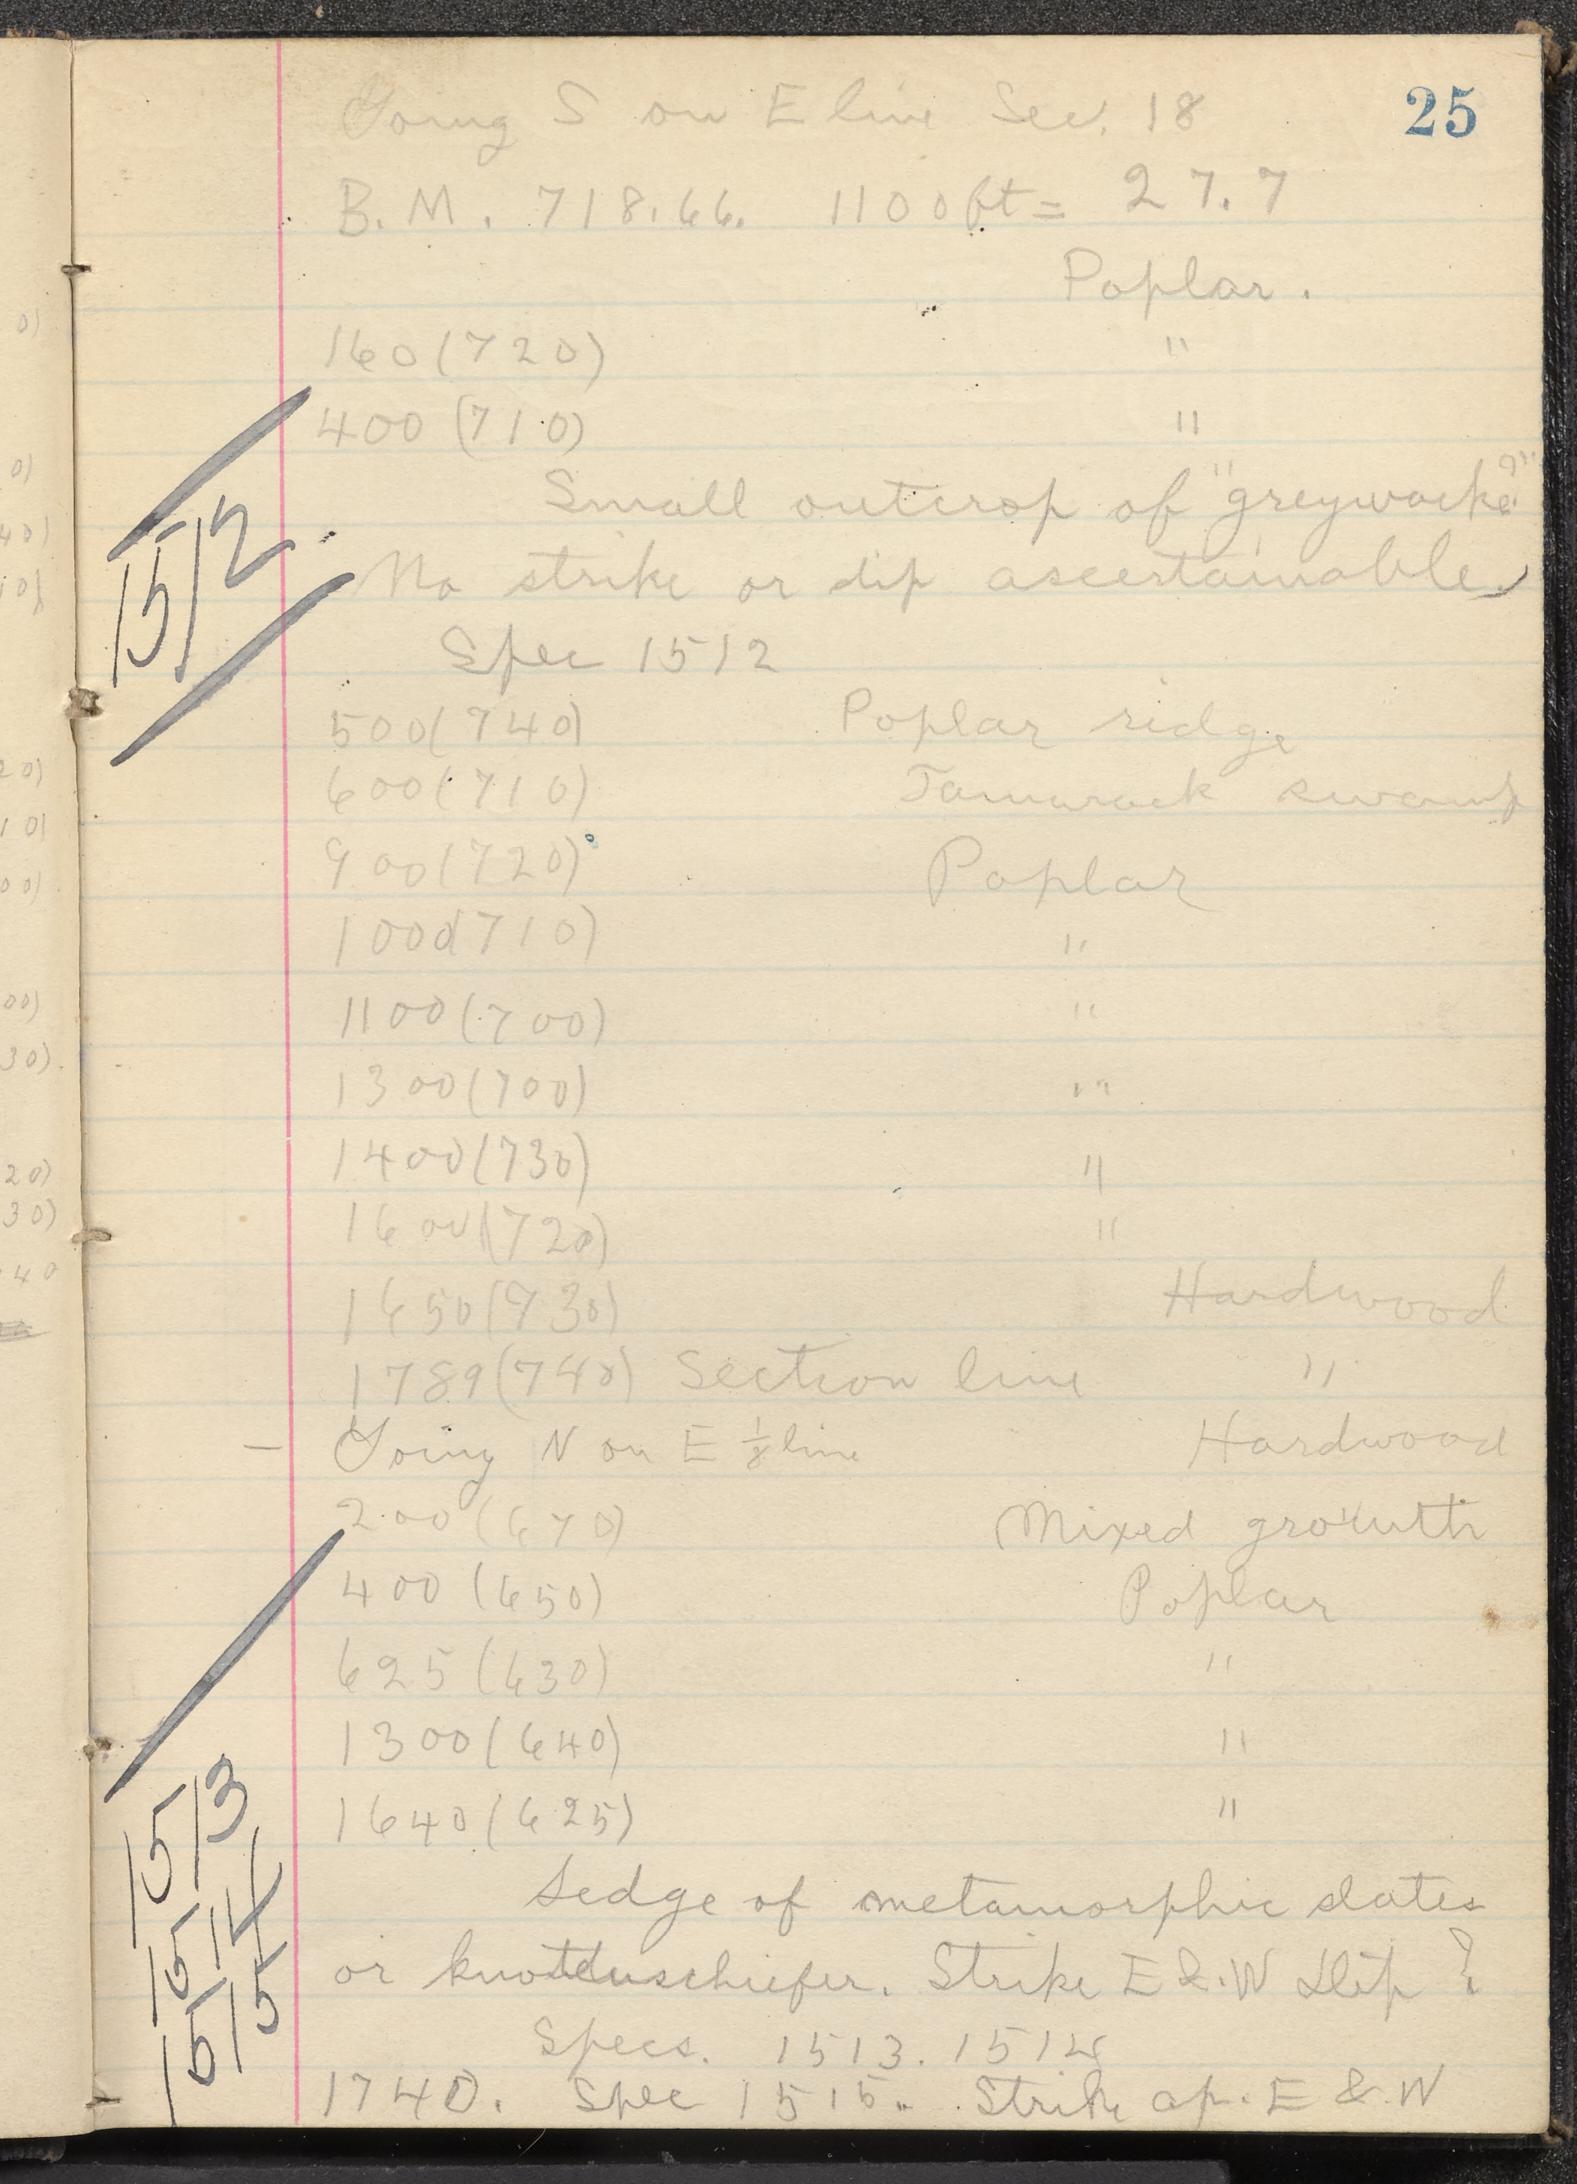 25
Going S on E line Sec. 18
B.M. 718.66. 1100 ft = 27.7
Poplar.
160 (720) "
400 (710) "
Small outcrop of "greywacke?"
No strike or dip ascertainable.
Spec 1512
1512
500 (740) Poplar ridge
600 (710) Tamarack swamp
900 (720) Poplar
1000 (710) "
1100 (700) "
1300 (700) "
1400 (730) "
1600 (720) "
1650 (730) Hardwood
1789 (740) Section line "
— Going N on E 1/8 line Hardwood
200 (670) Mixed growth
400 (650) Poplar
625 (630) "
1300 (640) "
1640 (625) "
Ledge of metamorphic slates
or knottenschiefer. Strike E & W Dip ?
Specs. 1513. 1514
1740. Spec 1515. Strike ap. E & W
1513
1514
1515